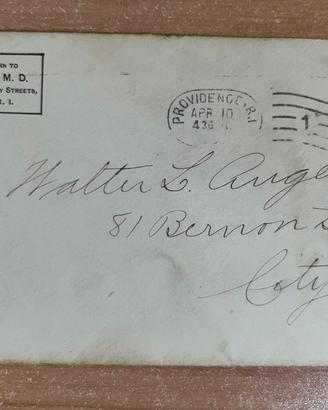 RN TO
M. D.
Y STREETS,
R. I.
PROVIDENCE, R.I.
APR 10
430
1
Walter L. Ange
81 Bernon S
City